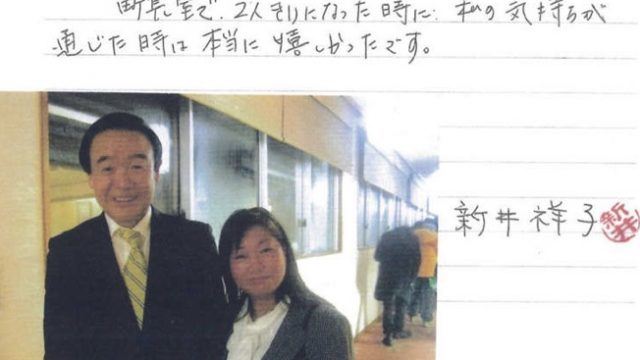 町長室で、2人きりになった時に、私の気持ちが
通じた時は本当に嬉しかったです。
新井祥子
新井